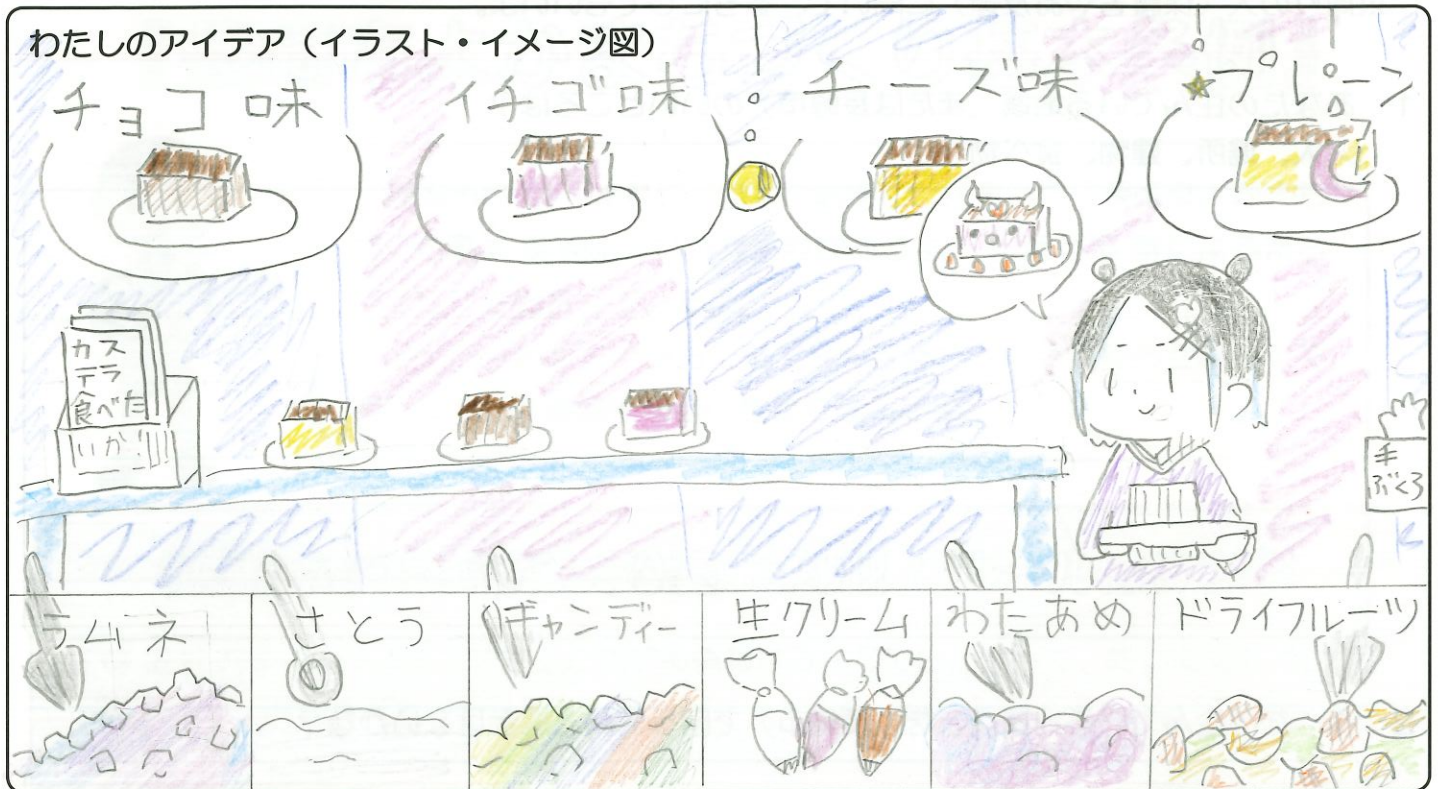 わたしのアイデア（イラスト・イメージ図）
チョコ味
イチゴ味
チーズ味
★プレーン
カス
テラ
食べた
いか!
手
ぶくろ
ラムネ
さとう
キャンディー
生クリーム
わたあめ
ドライフルーツ